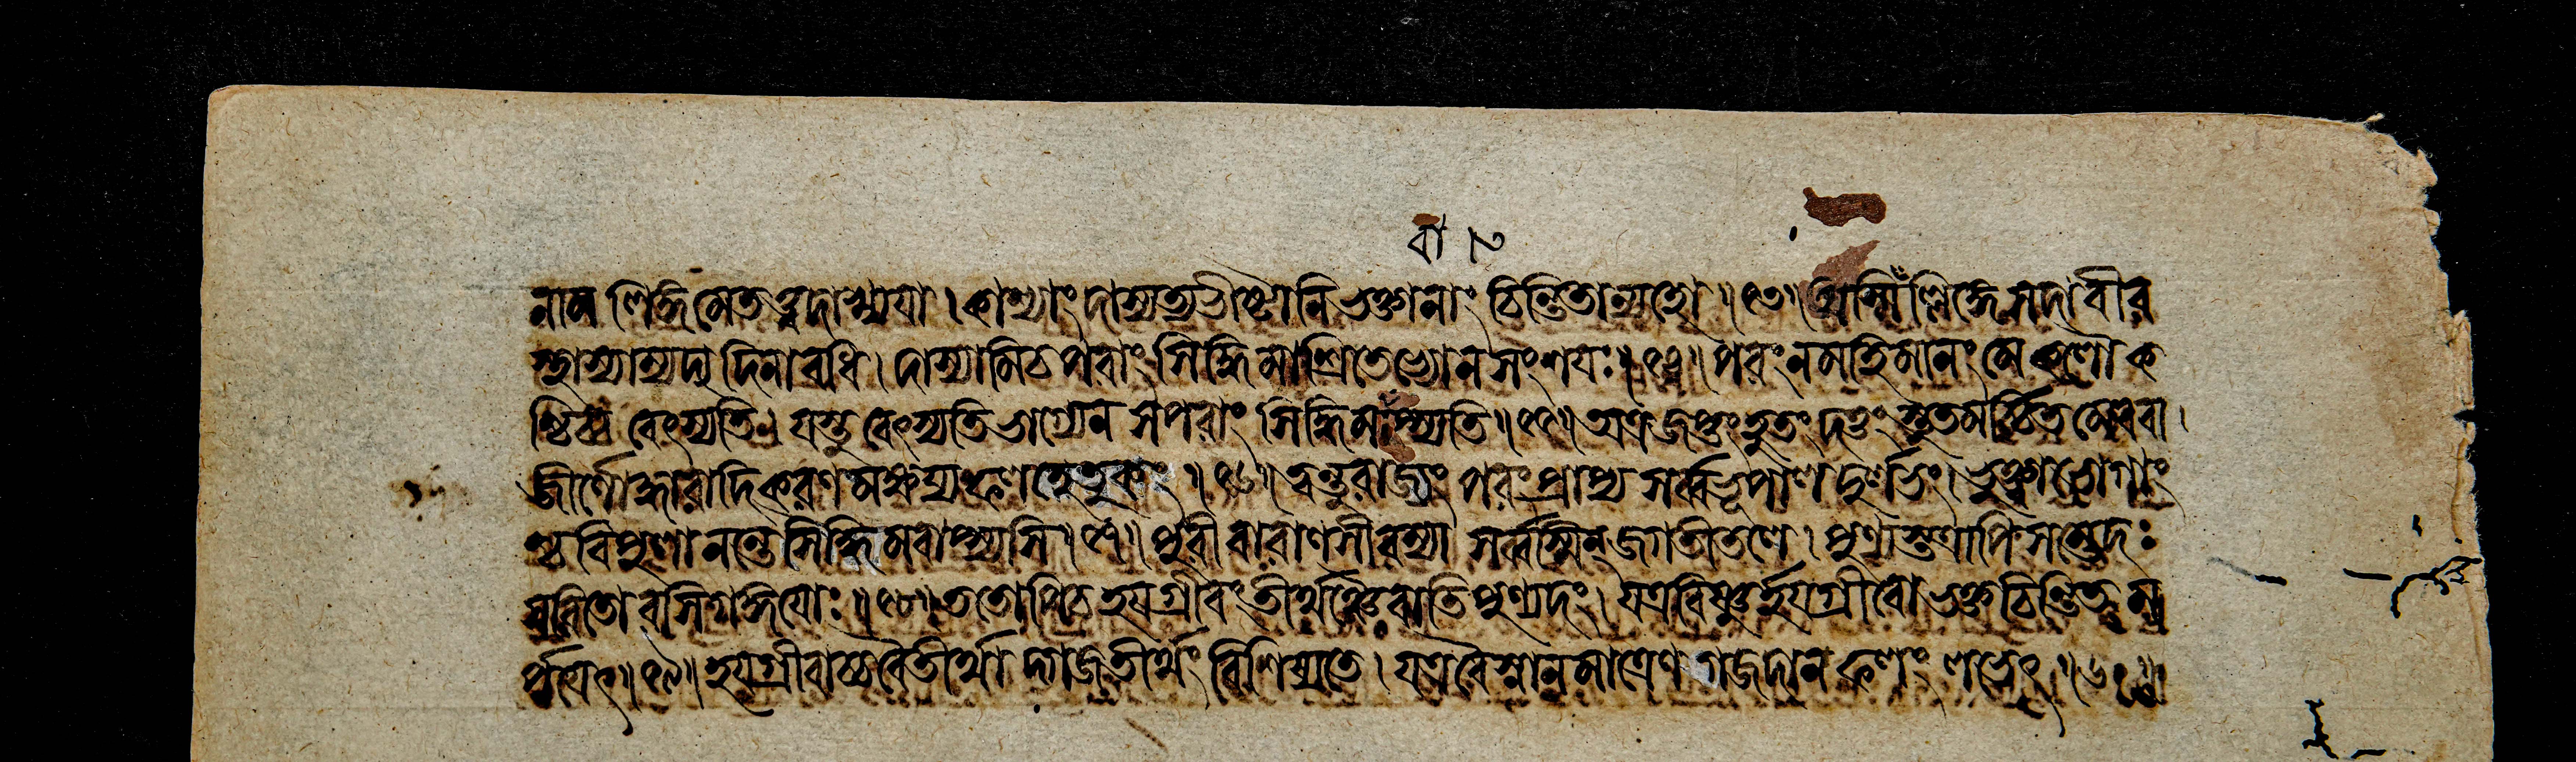 নাম লিঙ্গমেতত্তদাখ্যয়া । কাশ্যাং দাস্যত্যভীষ্টানি ভক্তানাং চিন্তিতান্যহো ॥ ৫৩॥ অস্মিঁল্লিঙ্গে সদা বীর
স্থাস্যাম্যদ্য দিনাবধি । দাস্যামি চ পরাং সিদ্ধিমাশ্রিতেভ্যো ন সংশয়ঃ ॥ ৫৪॥ পরং ন মহিমানং মে কলৌ ক
শ্চিচ্চ বেৎস্যতি । যস্তু বেৎস্যতি ভাগ্যেন স পরাং সিদ্ধিমাপ্স্যতি ॥ ৫৫॥ অত্র জপ্তং হুতং দত্তং স্তুতমর্চিতমেব বা ।
জীর্ণোদ্ধারাদিকরণমক্ষয়্যফলহেতুকং ॥ ৫৬॥ ত্বন্তু রাজ্যং পরং প্রাপ্য সর্ব্বভূপালদুর্লভং । ভুক্ত্বা ভোগাং
শ্চ বিপুলানন্তে সিদ্ধিমবাপ্স্যসি ॥ ৫৭॥ পুরী বারাণসী রম্যা সর্ব্বস্মিন্ জগতীতলে । পুণ্যস্তত্রাপি সম্ভেদঃ
সরিতোরসিগঙ্গয়োঃ ॥ ৫৮॥ ততোপি চ হয়গ্রীবং তীর্থঞ্চৈবাতিপুণ্যদং । যত্র বিষ্ণুর্হয়গ্রীবো ভক্তচিন্তিতম
র্পয়েৎ ॥ ৫৯॥ হয়গ্রীবাচ্চ বৈ তীর্থাদ্গজতীর্থং বিশিষ্যতে । যত্র বৈ স্নানমাত্রেণ গজদানফলং লভেৎ ॥ ৬০॥